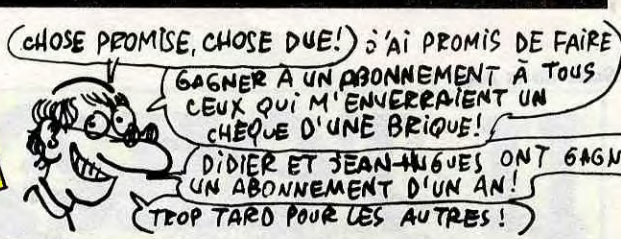 CHOSE PROMISE, CHOSE DUE! J'AI PROMIS DE FAIRE
GAGNER A UN ABONNEMENT À TOUS
CEUX QUI M'ENVERRAIENT UN
CHEQUE D'UNE BRIQUE!
DIDIER ET JEAN-HUGUES ONT GAGN
UN ABONNEMENT D'UN AN!
TROP TARD POUR LES AUTRES!